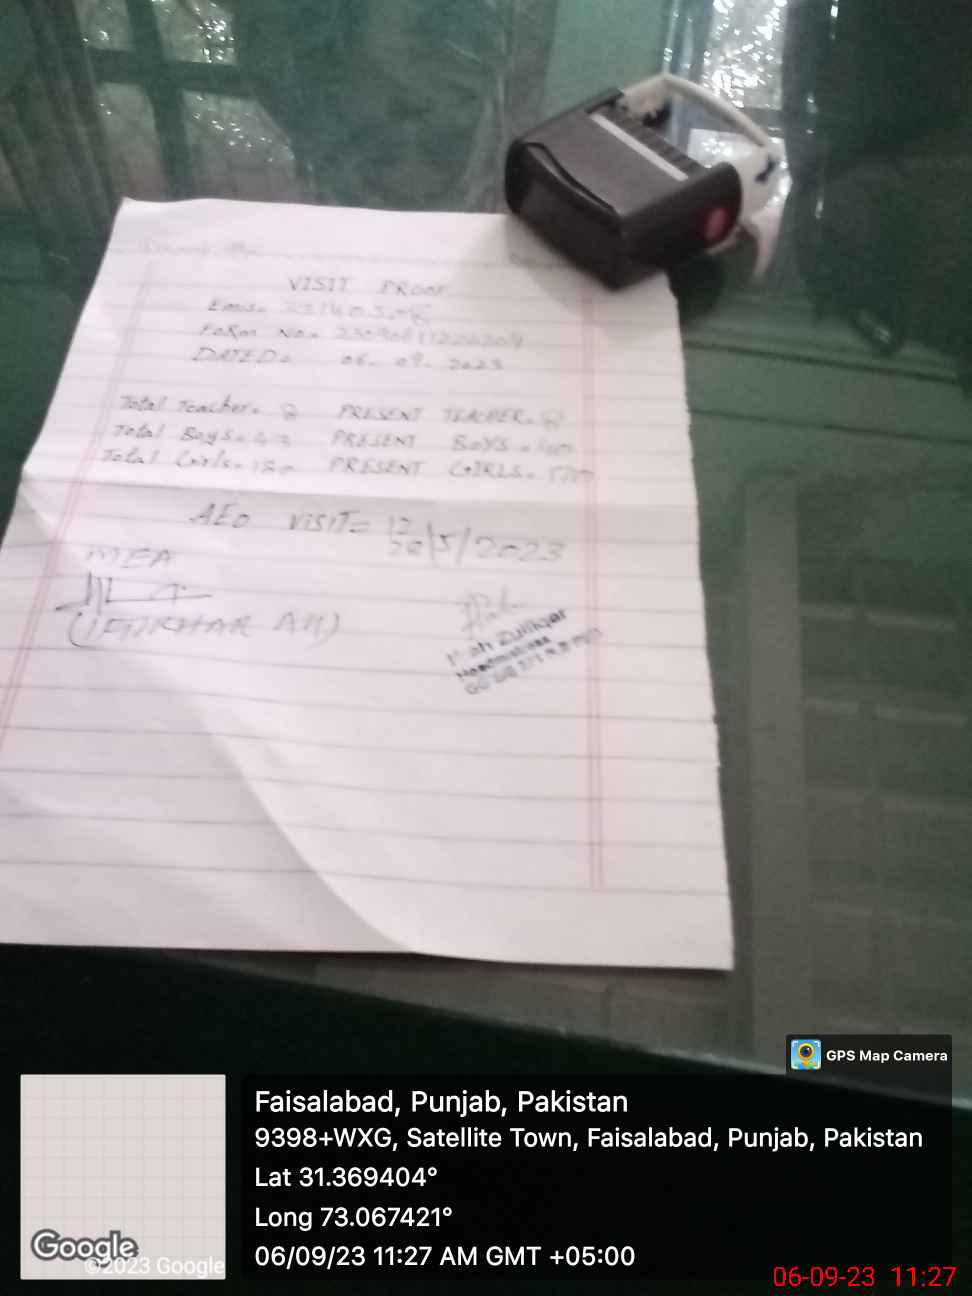 VISIT PROOF
Emis=
FORM No=
DATED= 06. 09. 2023
Total Teacher= 8 PRESENT TEACHER= 8
Total Boys= 43 PRESENT BOYS = 40
Total Girls= 180 PRESENT GIRLS=
AEO VISIT= 12/5/2023
MEA
(IFTIKHAR Ali)
Zulfiqar
Headmistress
GPS Map Camera
Faisalabad, Punjab, Pakistan
9398+WXG, Satellite Town, Faisalabad, Punjab, Pakistan
Lat 31.369404°
Long 73.067421°
06/09/23 11:27 AM GMT +05:00
Google
©2023 Google
06-09-23 11:27